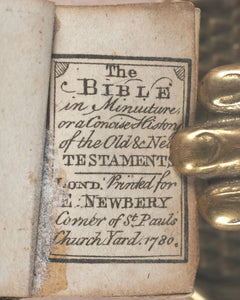 The
BIBLE
in Miniuture,
or a Concise History
of the Old & New
TESTAMENTS
LOND. Printed for
E. NEWBERY
Corner of St. Pauls
Church Yard. 1780.